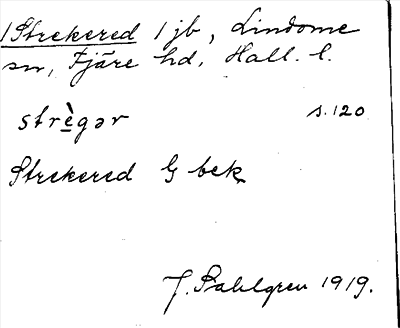 1 Strekered 1 jb, Lindome
sn, Fjäre hd, Hall. l.
strègər s. 120
Strekered G bek
J. Sahlgren 1919.